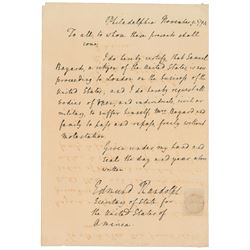 Philadelphia November 5. 1794
To all, to whom these presents shall
come,
I do hereby certify that Samuel
Bayard, a citizen of the United States is now
proceeding to London on the business of the
United States, and I do hereby request all
bodies of men, and individuals, civil or
military, to suffer himself Mrs. Bayard and
family to pass and repass freely without
molestation.
Given under my hand and
seal the day and year above
written
Edmund Randolph
Secretary of State for
the United States of
America